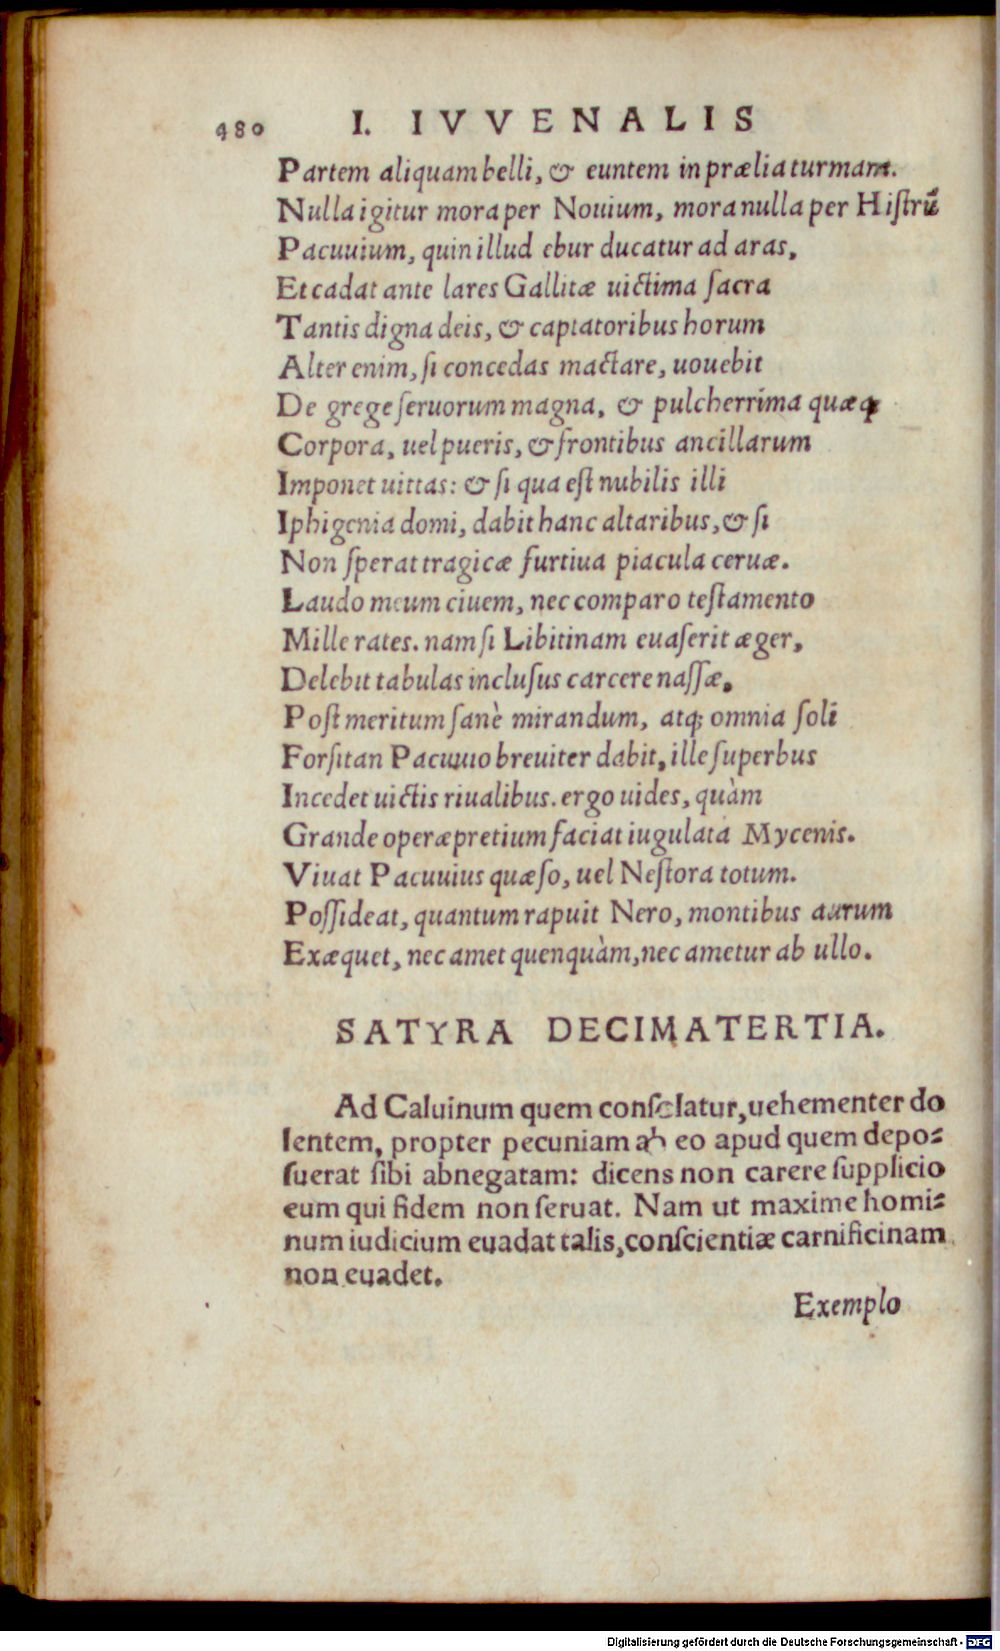 480 I. IVVENALIS
Partem aliquam belli, & euntem in prælia turmam.
Nulla igitur mora per Nouium, mora nulla per Hiſtrũ
Pacuuium, quin illud ebur ducatur ad aras,
Et cadat ante lares Gallitæ uictima ſacra
Tantis digna deis, & captatoribus horum
Alter enim, ſi concedas mactare, uouebit
De grege ſeruorum magna, & pulcherrima quæq;
Corpora, uel pueris, & frontibus ancillarum
Imponet uittas: & ſi qua eſt nubilis illi
Iphigenia domi, dabit hanc altaribus, & ſi
Non ſperat tragicæ furtiua piacula ceruæ.
Laudo meum ciuem, nec comparo teſtamento
Mille rates. nam ſi Libitinam euaſerit æger,
Delebit tabulas incluſus carcere naſſæ.
Poſt meritum ſanè mirandum, atq; omnia ſoli
Forſitan Pacuuio breuiter dabit, ille ſuperbus
Incedet uictis riualibus. ergo uides, quàm
Grande operæpretium faciat iugulata Mycenis.
Viuat Pacuuius quæſo, uel Neſtora totum.
Poſſideat, quantum rapuit Nero, montibus aurum
Exæquet, nec amet quenquàm, nec ametur ab ullo.
SATYRA DECIMATERTIA.
Ad Caluinum quem conſolatur, uehementer do
lentem, propter pecuniam ab eo apud quem depo⸗
ſuerat ſibi abnegatam: dicens non carere ſupplicio
eum qui fidem non ſeruat. Nam ut maxime homi⸗
num iudicium euadat talis, conſcientiæ carnificinam
non euadet.
Exemplo
Digitalisierung gefördert durch die Deutsche Forschungsgemeinschaft - DFG